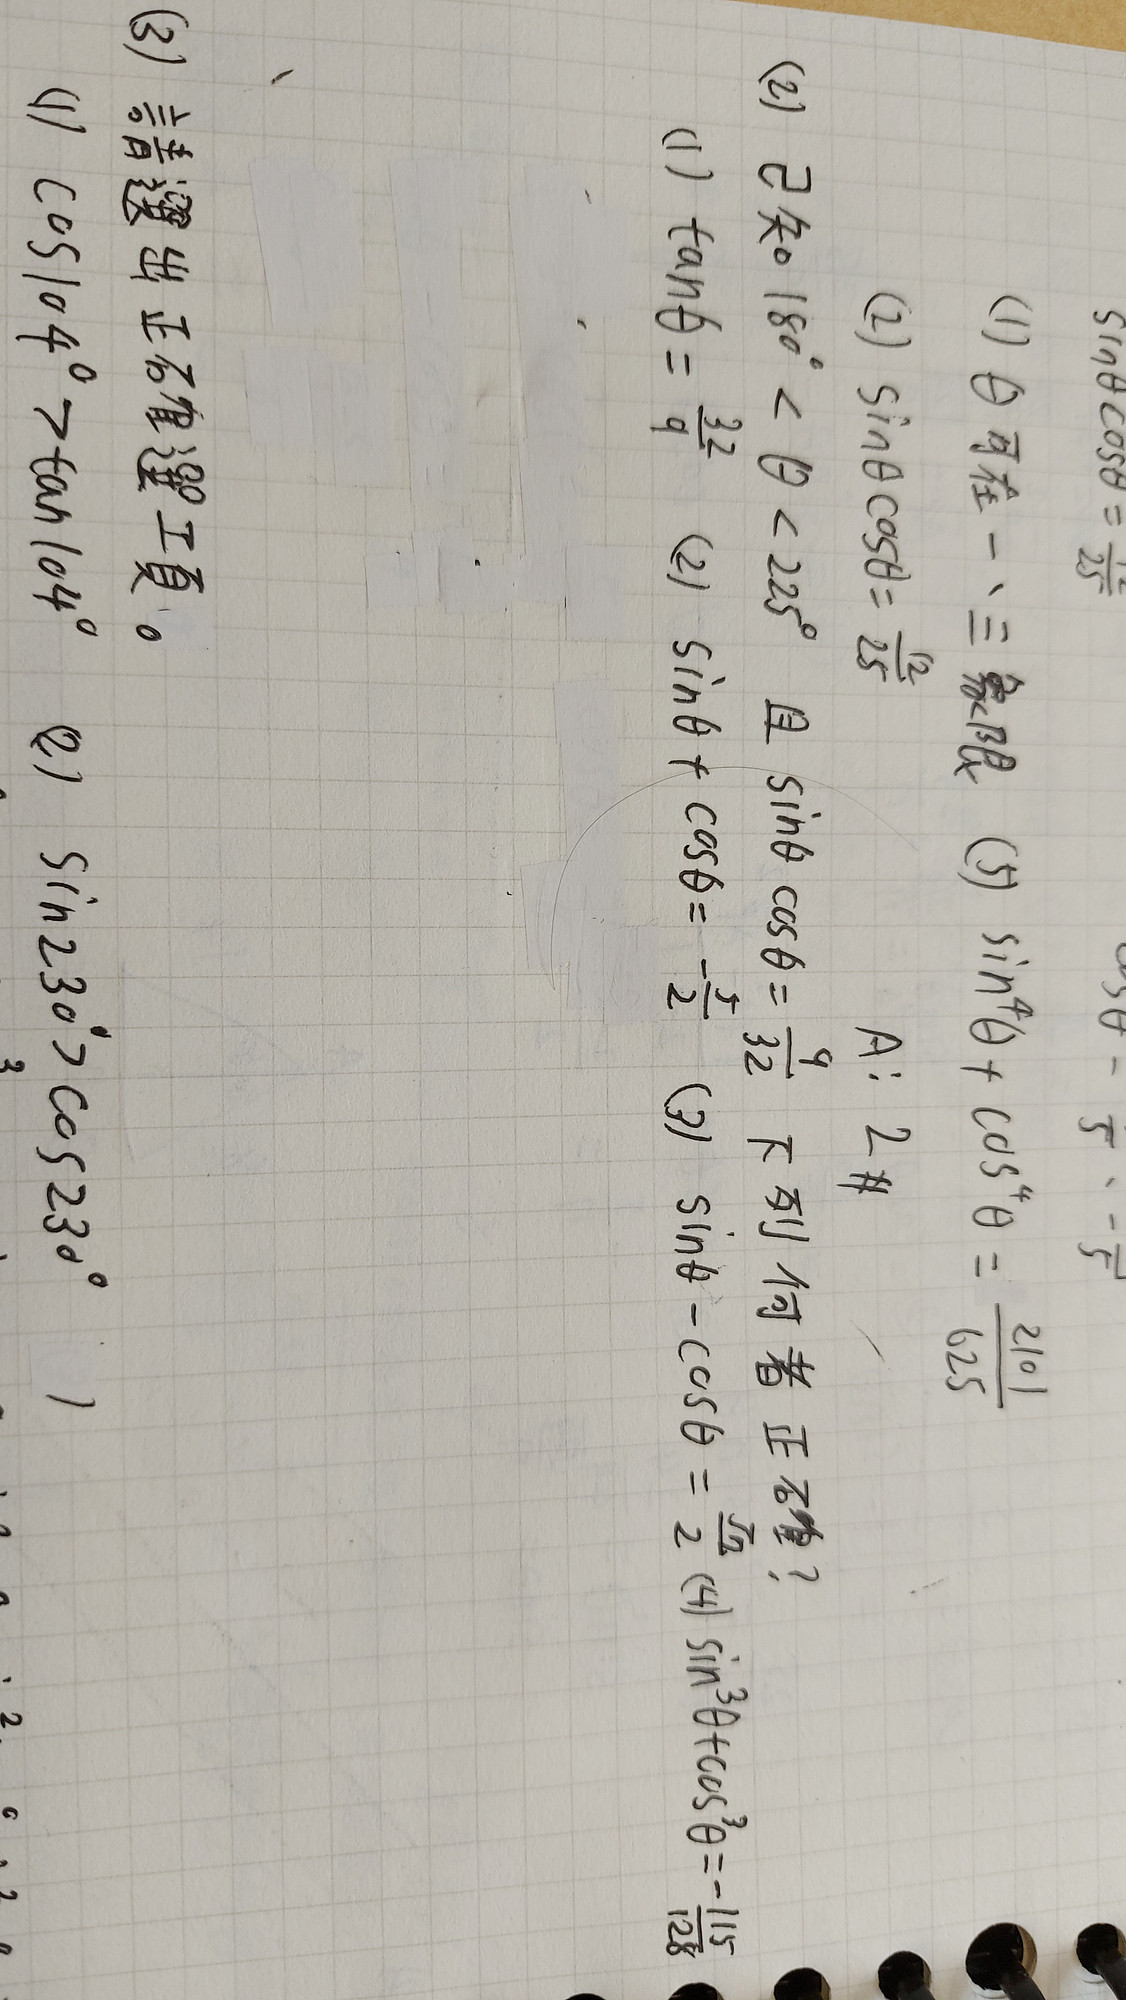 sinθcosθ = 12/25
(1) θ可在一、三象限 (5) sin⁴θ + cos⁴θ = 2101/625
(2) sinθcosθ = 12/25 A: 2#
(2) 已知 180° < θ < 225° 且 sinθcosθ = 9/32 下列何者正確?
(1) tanθ = 32/9 (2) sinθ + cosθ = -5/2 (3) sinθ - cosθ = √2/2 (4) sin³θ+cos³θ = -115/128
(3) 請選出正確選項。
(1) cos104° > tan104° (2) sin230° > cos230°